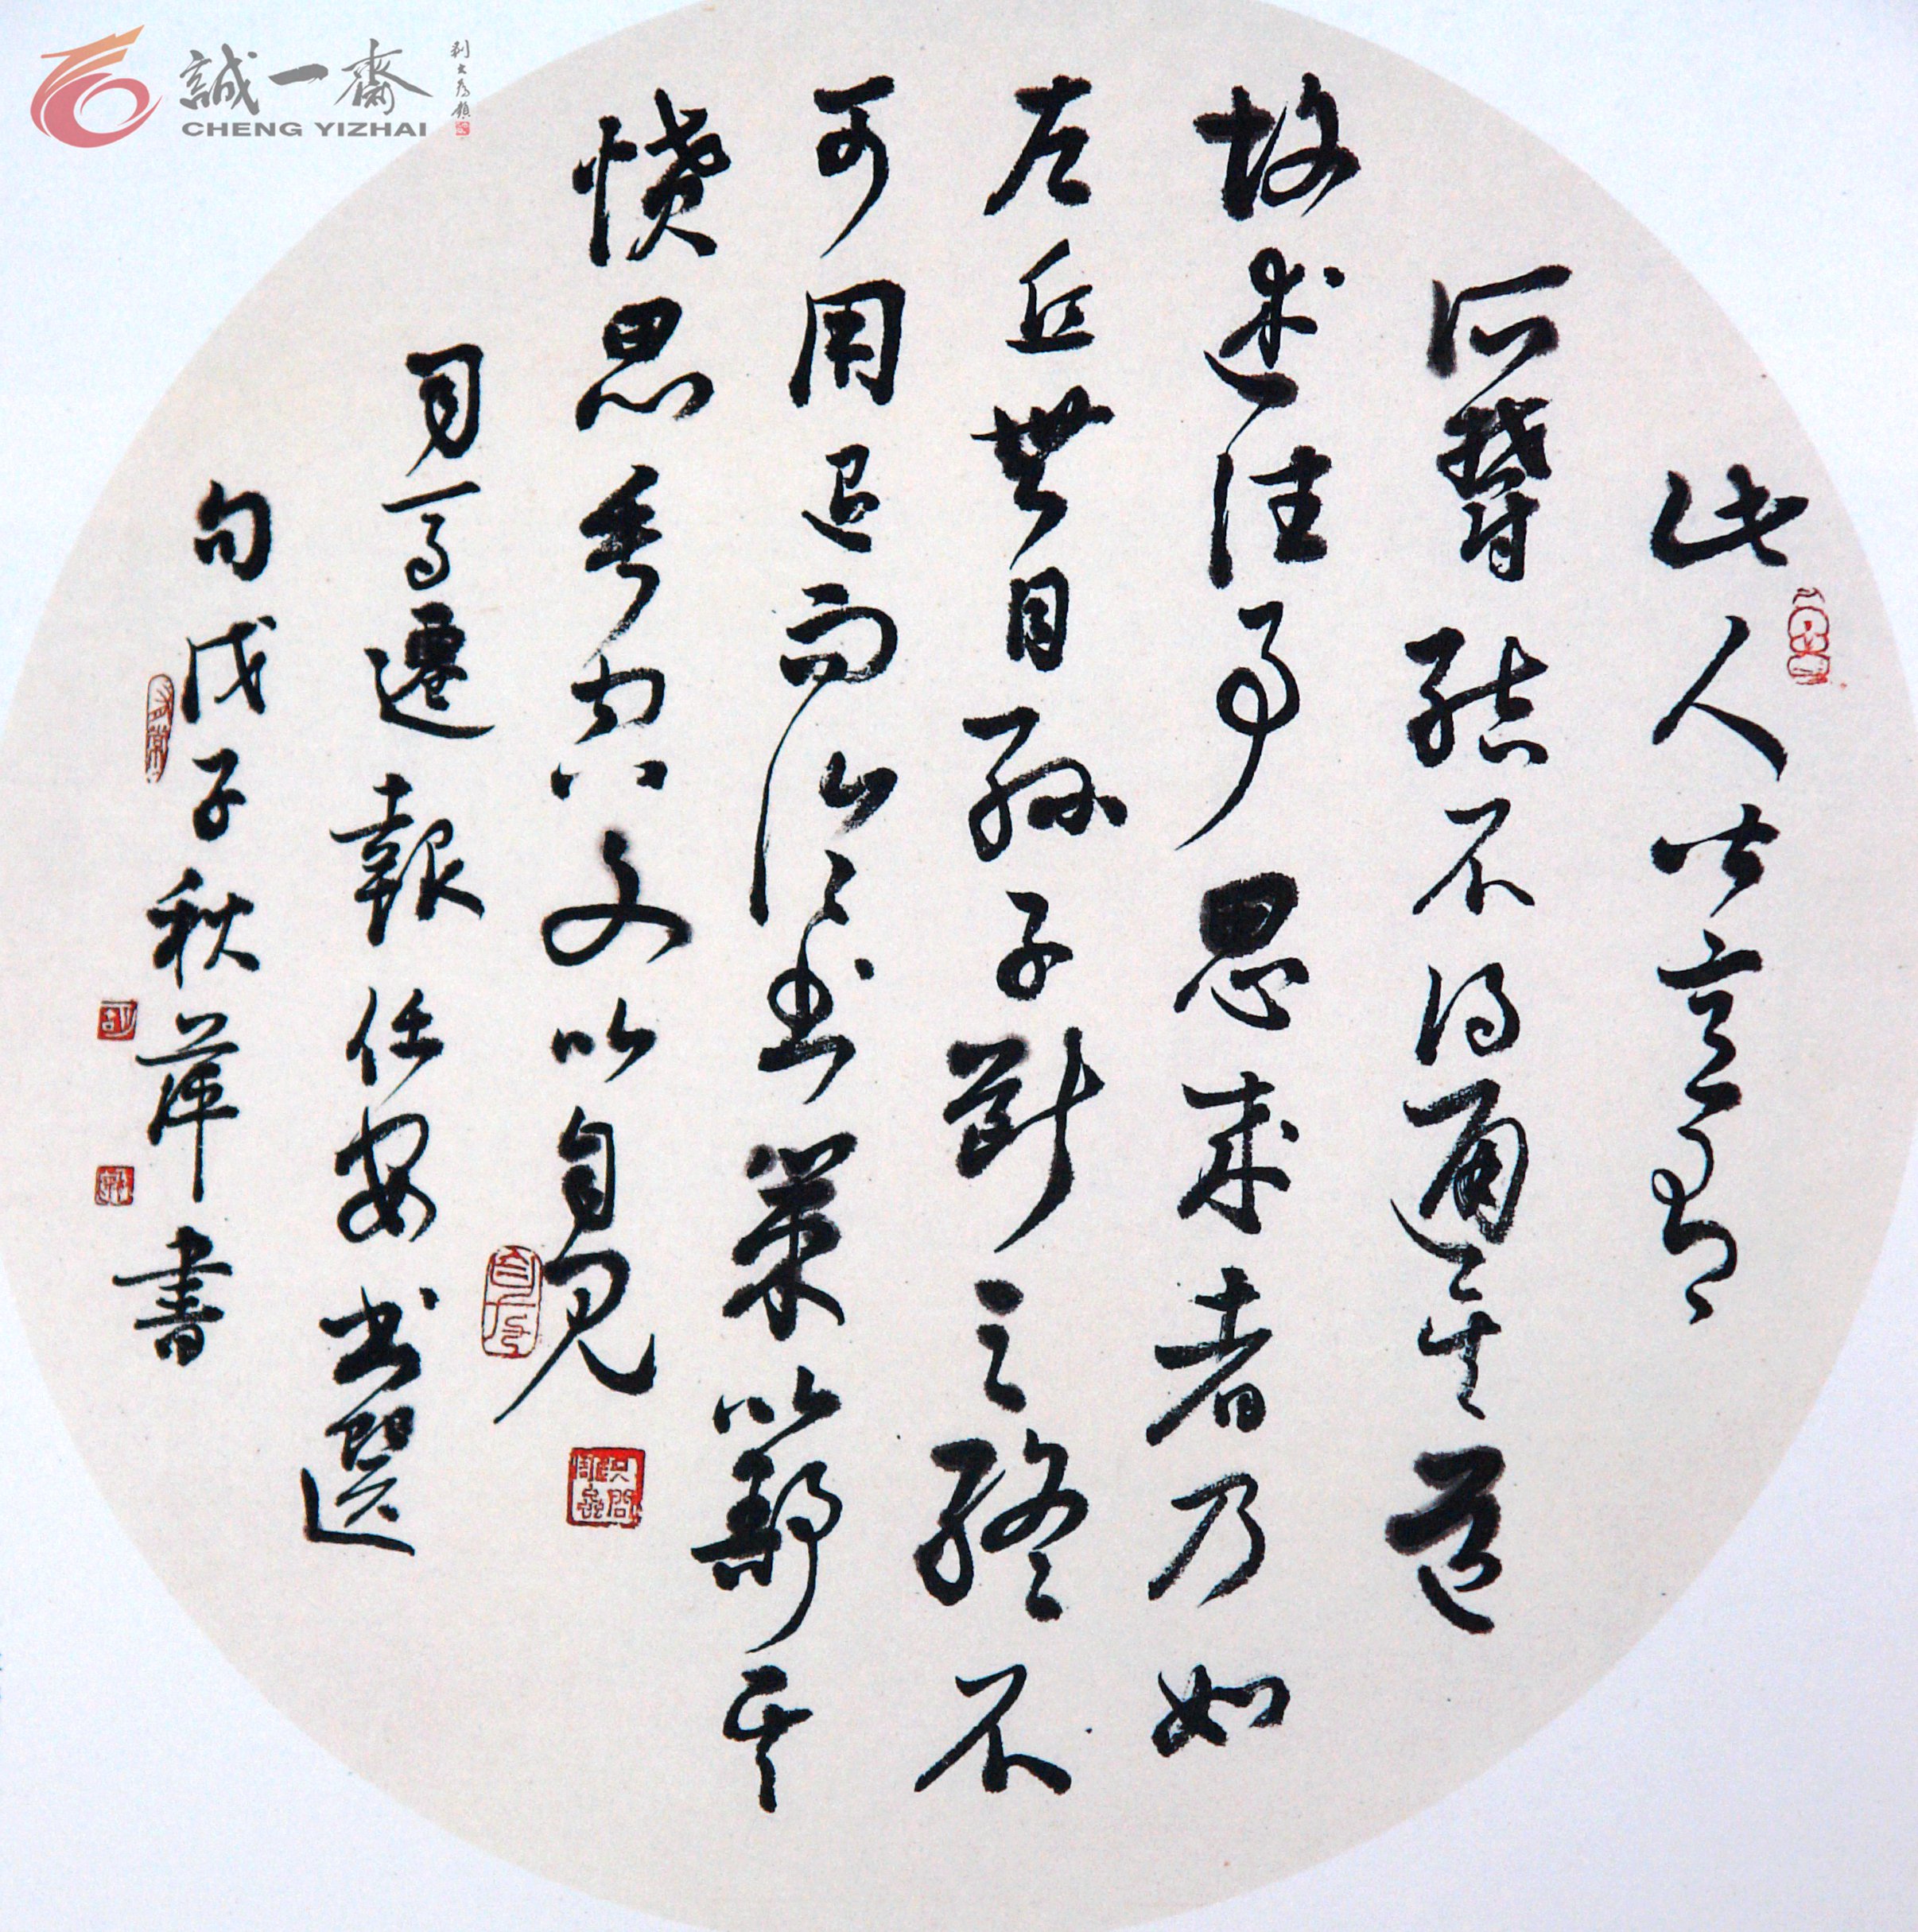 誠一齋
CHENG YIZHAI
此人皆意有
所鬱結不得通其道
故述往事思来者乃如
左丘無目孫子断足終不
可用退而論書策以舒其
憤思垂空文以自見
司馬遷報任安書選
句戊子秋萍書